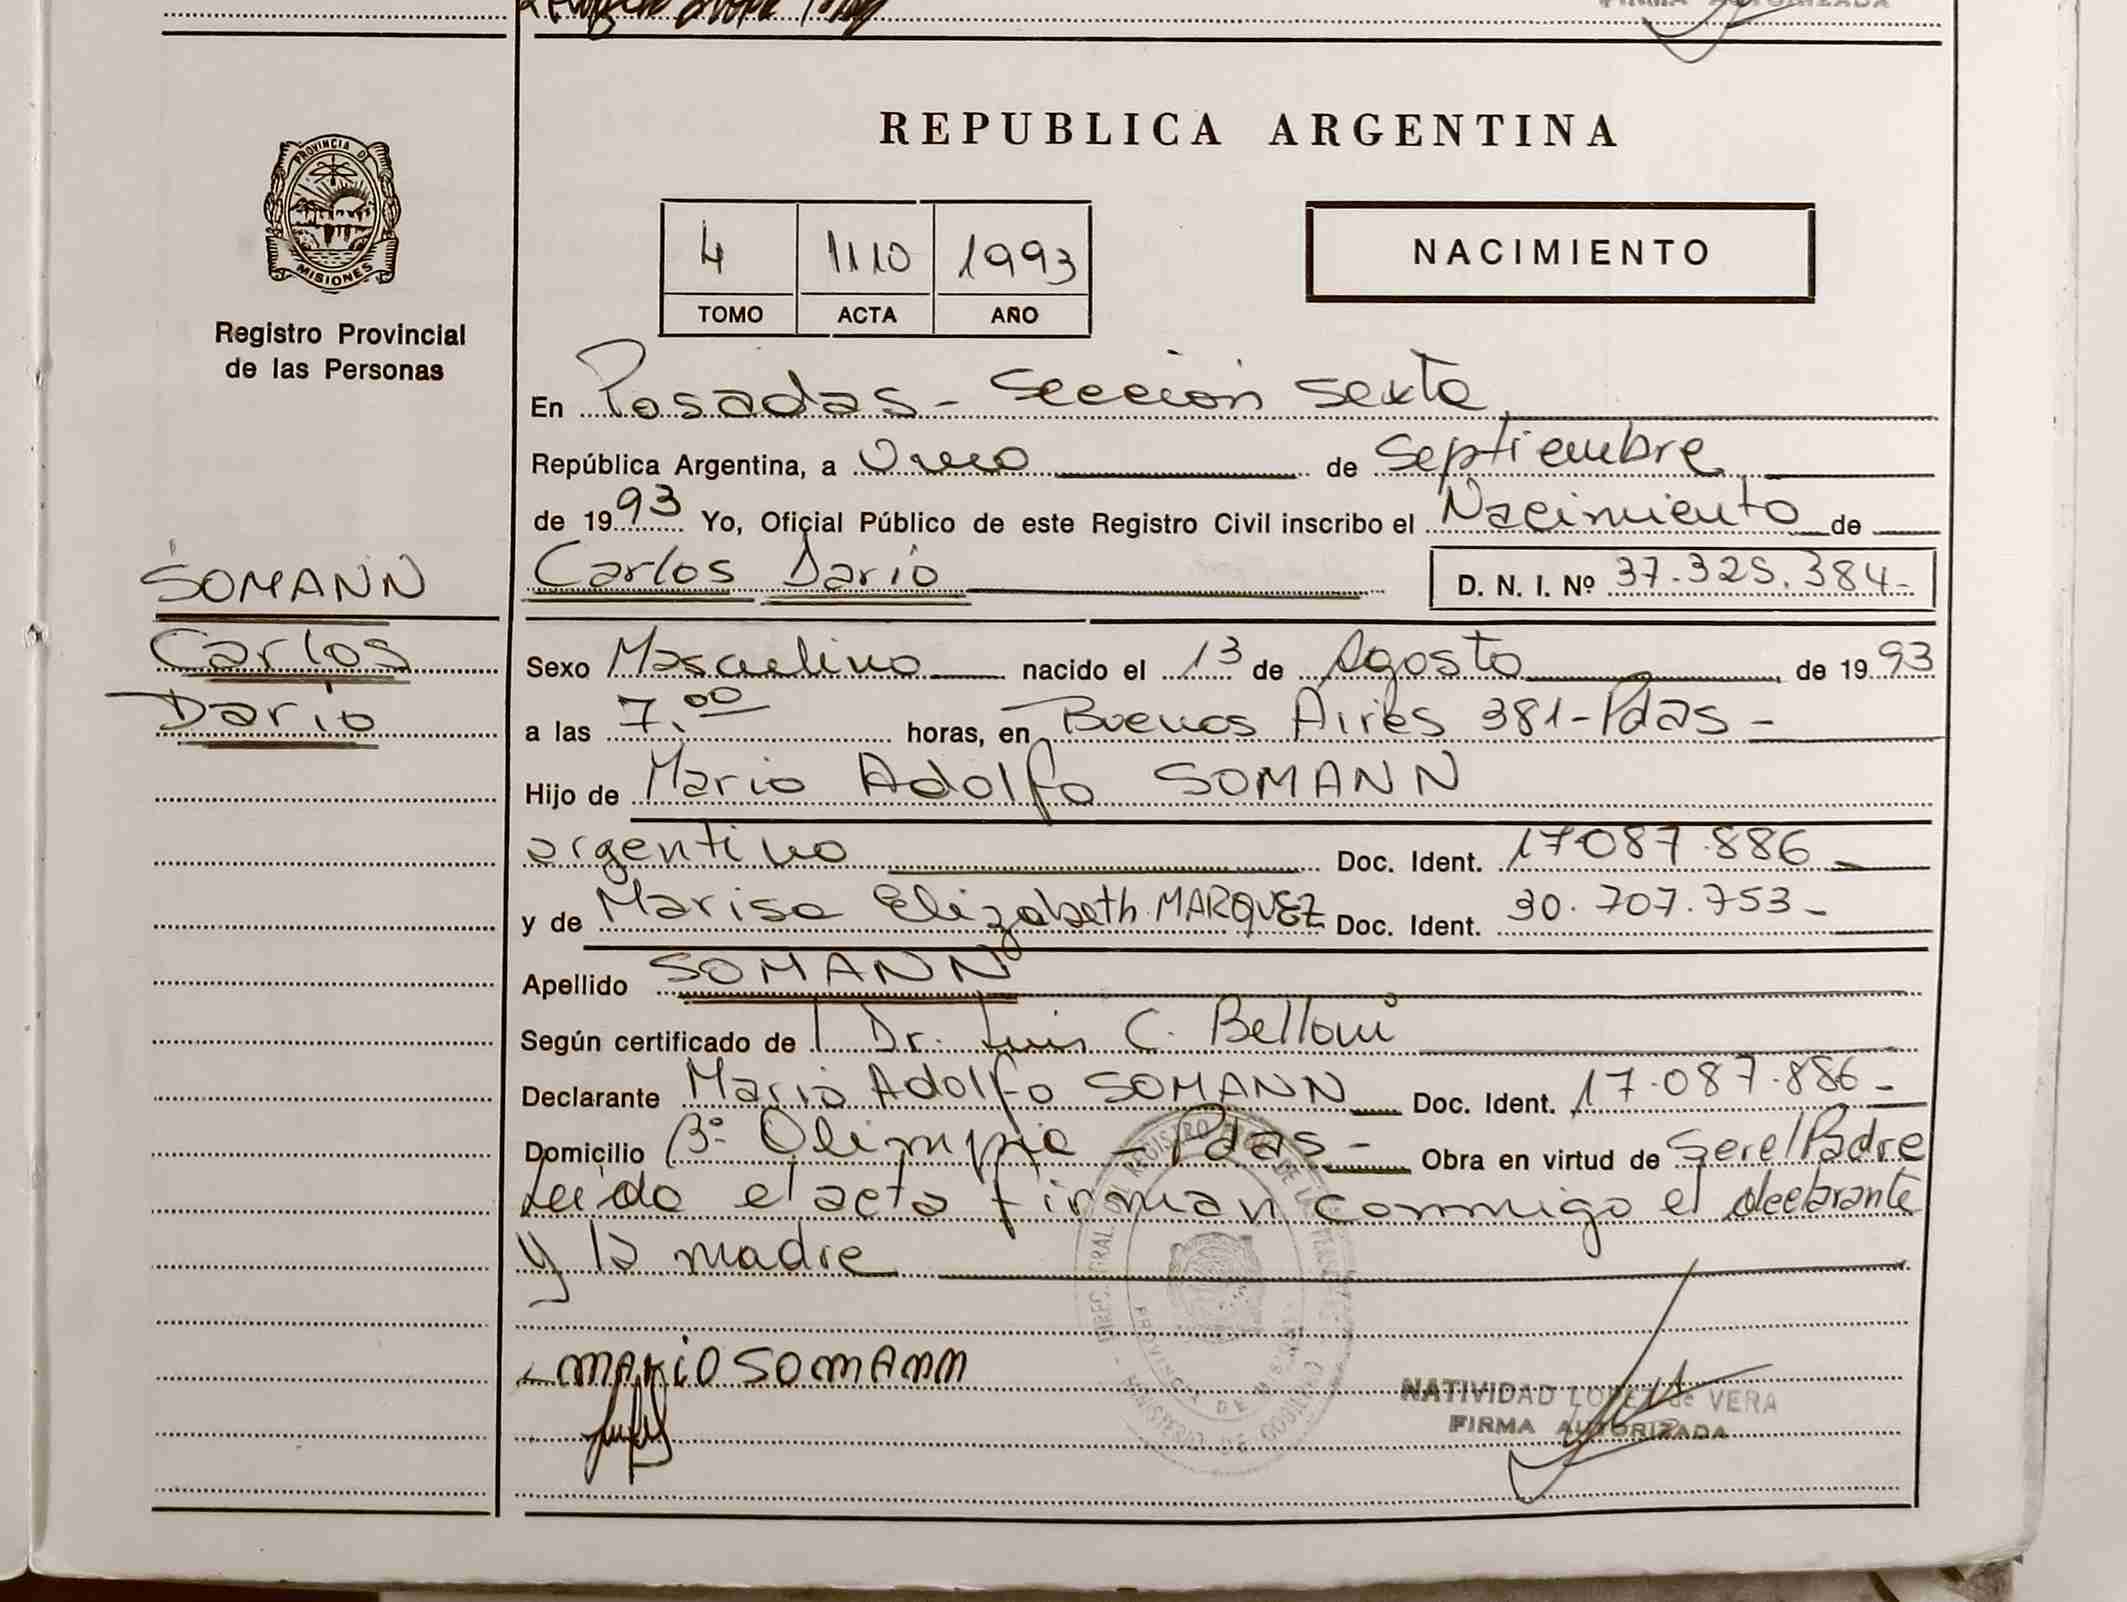 FIRMA AUTORIZADA
REPUBLICA ARGENTINA
PROVINCIA DE
MISIONES
Registro Provincial
de las Personas
4 1110 1993
TOMO ACTA AÑO
NACIMIENTO
En Posadas - Sección Sexta
República Argentina, a Uno de Septiembre
de 1993 Yo, Oficial Público de este Registro Civil inscribo el Nacimiento de
SOMANN
Carlos
Darío
Carlos Darío D. N. I. Nº 37.325.384-
Sexo Masculino nacido el 13 de Agosto de 1993
a las 7.00 horas, en Buenos Aires 381-Pdas-
Hijo de Mario Adolfo SOMANN
argentino Doc. Ident. 17087.886
y de Marisa Elizabeth MARQUEZ Doc. Ident. 30.707.753-
Apellido SOMANN
Según certificado de Dr. Luis C. Belloni
Declarante Mario Adolfo SOMANN Doc. Ident. 17.087.886-
Domicilio Bº Olimpia - Pdas - Obra en virtud de ser el Padre
Leída el acta firman conmigo el declarante
y la madre
MARIO SOMANN
NATIVIDAD LOPEZ de VERA
FIRMA AUTORIZADA
PROVINCIA DE MISIONES
MINISTERIO DE GOBIERNO